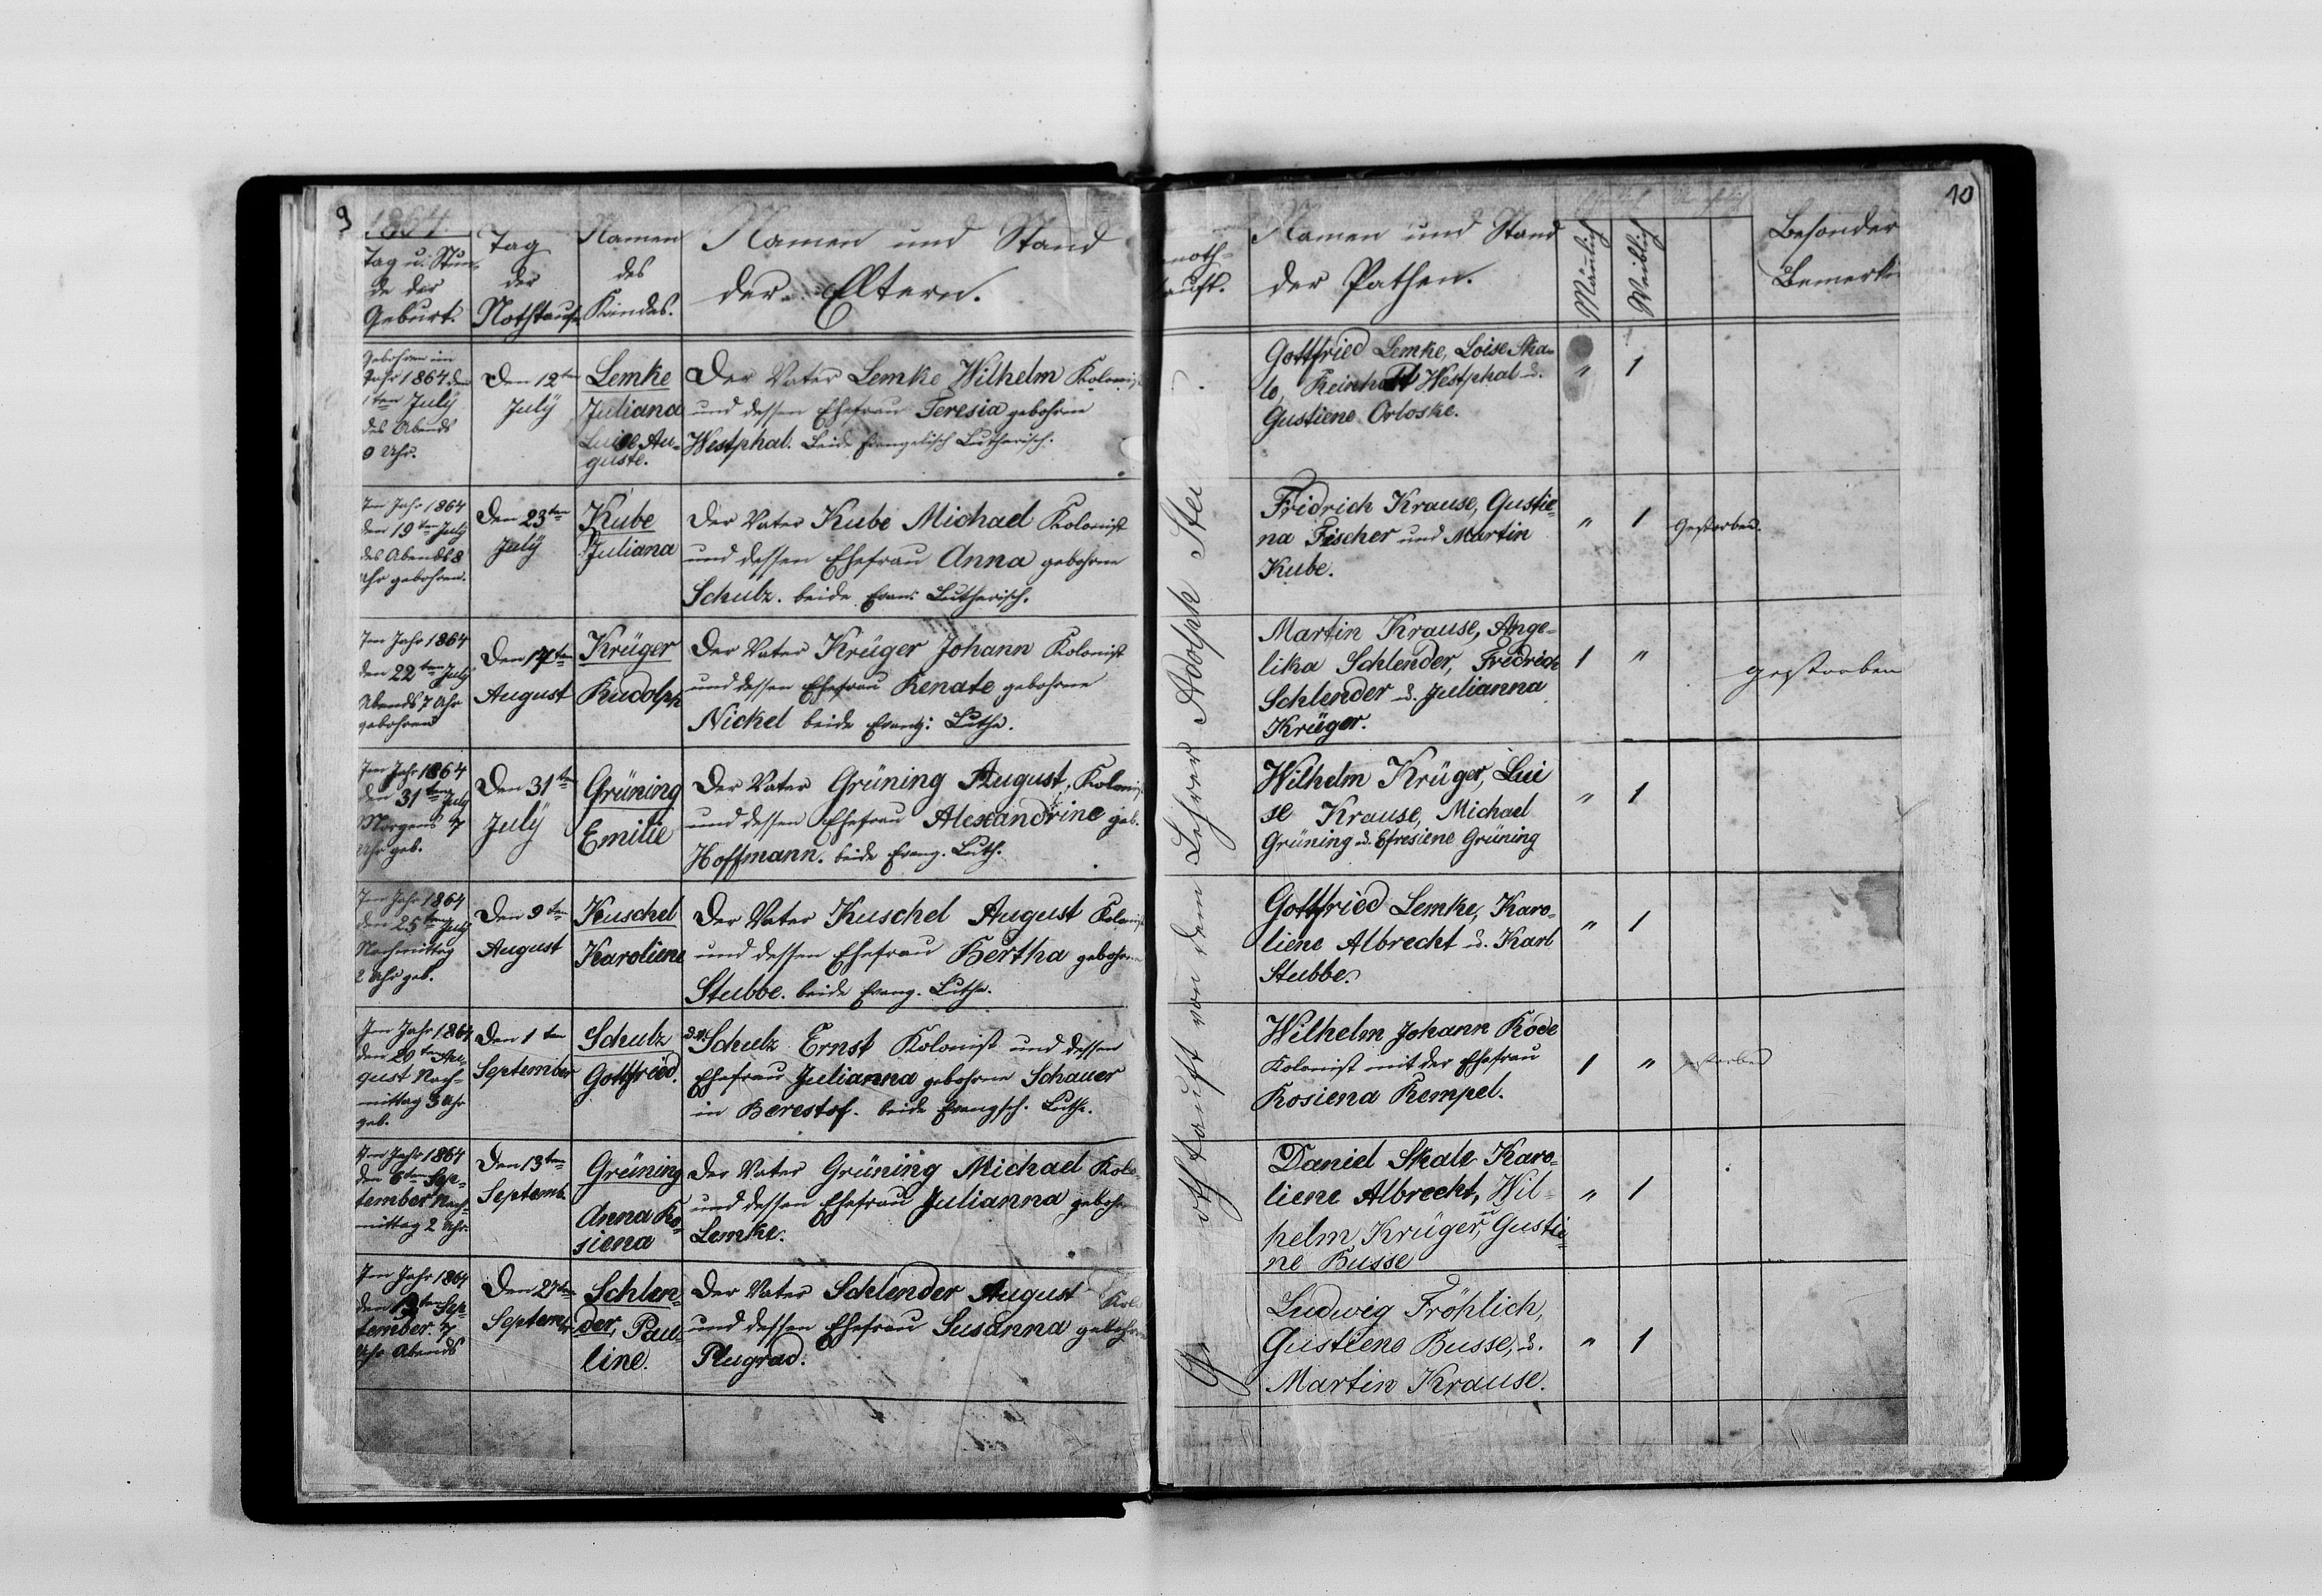 9
1864.
Tag u. Stun-
de der
Geburt.
Tag
der
Nothtaufe
Namen
des
Kindes.
Namen und Stand
der Eltern.
Gebohren im
Jahr 1864 den
1ten July
des Abends
9 Uhr.
Den 12ten
July
Lemke
Juliana
Luise Au-
guste.
Der Vater Lemke Wilhelm Kolonist
und dessen Ehefrau Teresia gebohrne
Westphal. beide Evangelisch Lutherisch.
Im Jahr 1864
den 19ten July
des Abends 8
Uhr gebohren.
Den 23ten
July
Kube
Juliana
Der Vater Kube Michael Kolonist
und dessen Ehefrau Anna gebohrne
Schulz. beide Evan: Lutherisch.
Im Jahr 1864
den 22ten July
Abends 7 Uhr
gebohren
Den 17ten
August
Krüger
Rudolph
Der Vater Krüger Johann Kolonist
und dessen Ehefrau Renate gebohrne
Nickel beide Evang: Luthe.
Im Jahr 1864
den 31ten July
Morgens 7
Uhr geb.
Den 31ten
July
Grüning
Emilie
Der Vater Grüning August, Kolonist
und dessen Ehefrau Alexandrine geb.
Hoffmann. beide Evang. Luth.
Im Jahr 1864
den 25ten July
Nachmittag
2 Uhr geb.
Den 9ten
August
Kuschel
Karoliene
Der Vater Kuschel August Kolonist
und dessen Ehefrau Bertha gebohrne
Stubbe. beide Evang. Luthe.
Im Jahr 1864
den 29ten Au-
gust Nach-
mittag 3 Uhr
geb.
Den 1ten
September
Schulz
Gottfried.
Schulz Ernst Kolonist und dessen
Ehefrau Julianna gebohrne Schauer
in Berestof. beide Evangsch. Luthe.
Im Jahr 1864
den 6ten Sep-
tember Nach-
mittag 2 Uhr.
Den 13ten
Septemb.
Grüning
Anna Ro-
siena
Der Vater Grüning Michael Kolo-
und dessen Ehefrau Julianna gebohr
Lemke.
Im Jahr 1864
den 13ten Sep-
tember. 7
Uhr Abends
Den 27ten
Septemb
Schlen-
der, Pau-
line.
Der Vater Schlender August Kolo
und dessen Ehefrau Susanna gebohrne
Plugrad.
10
noth-
tauft.
Namen und Stand
der Pathen.
Mänlich
Weiblich
Besonder
Bemerk
Gothtauft von dem Lehrer Adolph Stei
Gottfried Lemke, Loise Ska-
le, Reinhold Westphal u.
Gustiene Orloske.
" 1
Fridrich Krause, Gustie-
na Fischer und Martin
Kube.
" 1 Gestorben.
Martin Krause, Ange-
lika Schlender, Fredrich
Schlender u. Julianna
Krüger.
1 " gestorben
Wilhelm Krüger, Lui
se Krause, Michael
Grüning u. Efresiene Grüning
" 1
Gottfried Lemke, Karo-
liene Albrecht u. Karl
Stubbe.
" 1
Wilhelm Johann Rode
Kolonist mit der Ehefrau
Rosiena Rempel.
1 " gestorben
Daniel Skale Karo-
liene Albrecht, Wil-
helm Krüger, u Gustie-
ne Busse
" 1
Ludwig Fröhlich,
Gustiene Busse, u.
Martin Krause.
" 1